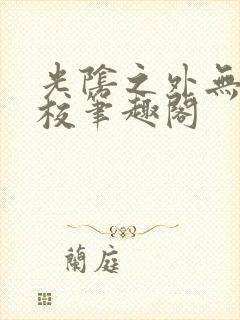 光陰之外無
校筆趣閣
蘭庭